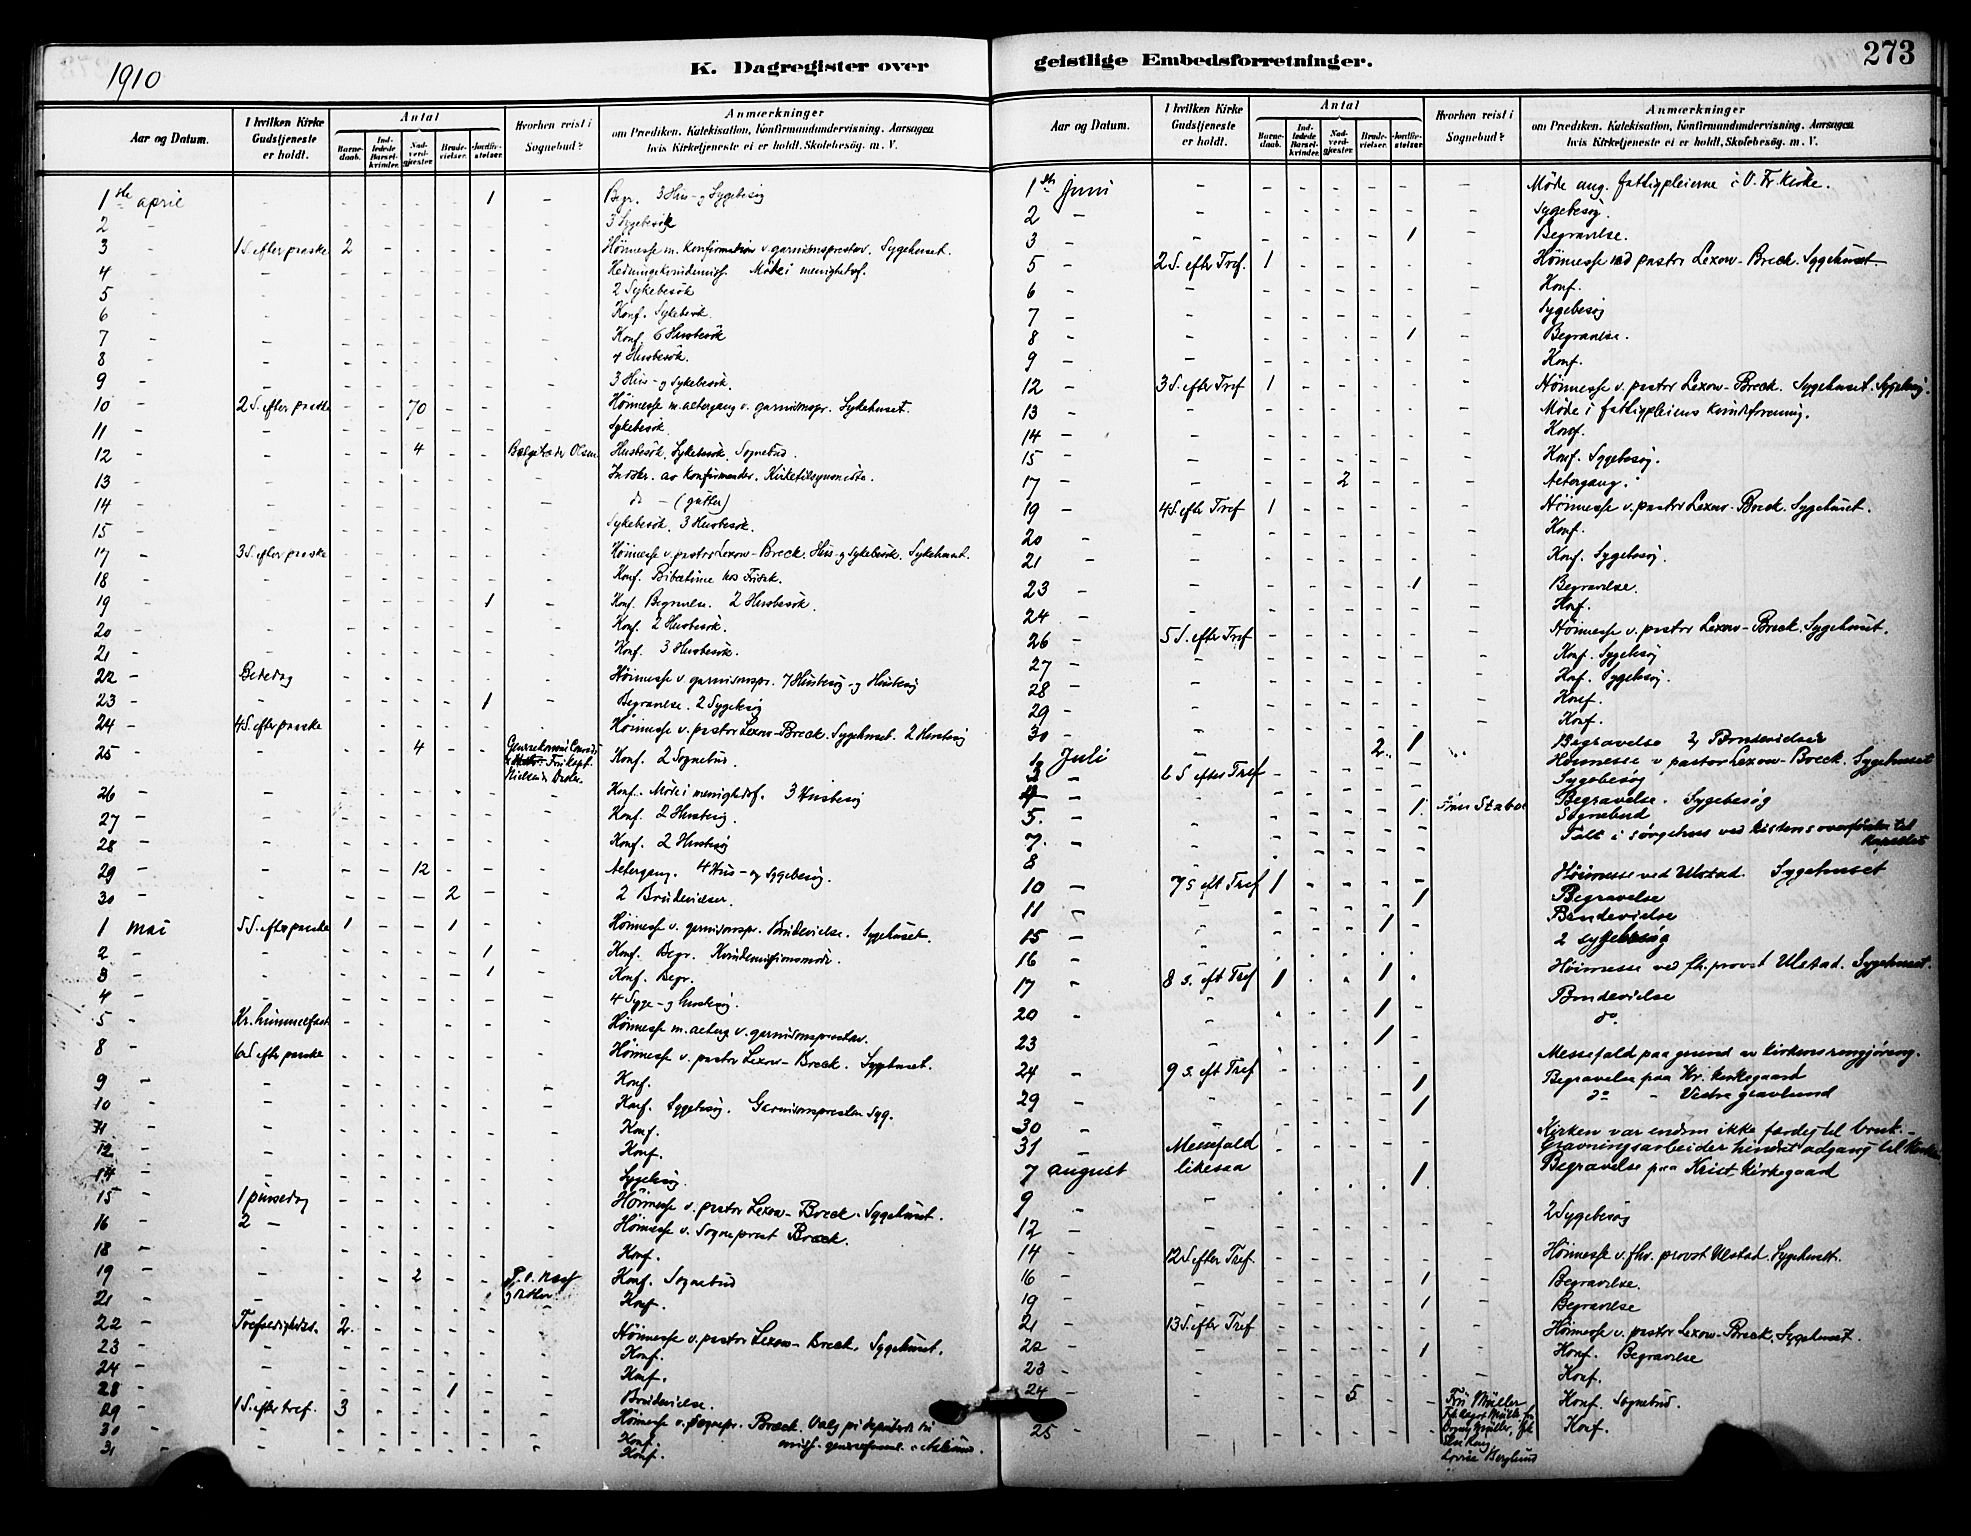 1910
K. Dagregister over
Aar og Datum.
I hvilken Kirke Gudstjeneste er holdt.
Antal
Barne-daab.
Ind-ledede Barsel-kvinder.
Nad-verd-gjæster.
Brude-vielser.
Jordfæ-stelser.
Hvorhen reist i Sognebud?
Anmærkninger
om Prædiken. Katekisation, Konfirmandundervisning. Aarsagen
hvis Kirketjeneste ei er holdt. Skolebesøg. m. V.
1ste april - - - - - 1 - Begr. 3 Hus- og Sygebesøg
2 - 3 Sygebesøk
3 - 1 S. efter paaske 2 Høimesse m. Konfirmation v. garnisonsprestev. Sygehuset.
4 - Møte i menighetsf.
5 - 2 Sykebesøk
6 - Konf. Sykebesøk
7 - Konf. 6 Husbesøk
8 - 4 Husbesøk.
9 - 3 Hus- og Sykebesøk.
10 - 2 S. efter paaske - - 70 - - - Høimesse m. altergang v. garnisonspr. Sykehuset.
11 - Sykebesøk
12 - - - - 4 - - Olsen Husbesøk. Sykebesøk. Sognebud.
13 - Indskr. av konfirmander.
14 - do - (gutter)
15 - Sykebesøk. 3 Husbesøk.
17 - 3 S. efter paaske Høimesse v. pastor Lexow-Breck. Hus- og Sykebesøk. Sykehuset.
18 - Konf. Bibeltime hos
19 - - - - - - 1 - Konf. Begravelse. 2 Husbesøk.
20 - Konf. 2 Husbesøk.
21 - Konf. 3 Husbesøk.
22 - Bededag Høimesse v. garnisonspr. 7
23 - - - - - - 1 Begravelse. 2 Sygebesøg
24 - 4 S. efter paaske Høimesse v. pastor Lexow-Breck. Sygehuset. 2 Husbesøg
25 - - - - 4 - - Konf. 2 Sognebud.
26 - Konf. Møde i menighedsf. 3 Husbesøg
27 - Konf. 2 Husbesøg.
28 - Konf. 2 Husbesøg
29 - - - - 12 - - Altergang. 4 Hus- og Sygebesøg.
30 - - - - - 2 - - 2 Brudevielser.
1 mai 5 S. efter paaske 1 - - 1 - - Høimesse v. garnisonspr. Brudevielse. Sygehuset.
2 - - - - - - 1 - Konf. Begr. Kvindemissionsmøde.
3 - - - - - - 1 - Konf. Begr.
4 - 4 Syge- og Husbesøg.
5 - Kr. himmelfart Høimesse m. alterg. v. garnisonsprestev.
8 - 6 S. efter paaske Høimesse v. pastor Lexow-Breck. Sygehuset.
9 - Konf.
10 - Konf. Sygebesøg. Garnisonspresten syg.
11 - Konf.
12 - Konf.
14 - Sygebesøg.
15 - 1 pinsedag Høimesse v. pastor Lexow-Breck. Sygehuset.
16 - 2 - Høimesse v. Sogneprest Breck.
18 - Konf.
19 - - - - 2 - - Konf. Sognebud
21 - Konf.
22 - Trefoldighets. 2 Høimesse v. pastor Lexow-Breck. Sygehuset.
23 - Konf.
24 - Konf.
28 - - - - - 1 - - Brudevielse.
29 - 1 S. efter tref. 3 Høimesse v. Sognepr. Breck. Valg
30 - Konf.
31 - Konf.
273
geistlige Embedsforretninger.
Aar og Datum.
I hvilken Kirke Gudstjeneste er holdt.
Antal
Barne-daab.
Ind-ledede Barsel-kvinder.
Nad-verd-gjæster.
Brude-vielser.
Jordfæ-stelser.
Hvorhen reist i Sognebud?
Anmærkninger
om Prædiken. Katekisation, Konfirmandundervisning. Aarsagen
hvis Kirketjeneste ei er holdt. Skolebesøg. m. V.
1ste juni Møde ang. fattigpleierne i V. Fr. Kirke.
2 - Sygebesøg.
3 - - - - - - 1 - Begravelse.
5 - 2 S. efter Tref. 1 Høimesse ved pastor Lexow-Breck. Sygehuset
6 - Konf.
7 - Sygebesøg
8 - - - - - - 1 - Begravelse.
9 - Konf.
12 - 3 S. efter Tref 1 Høimesse v. pastor Lexow-Breck. Sygehuset. Sygebesøg.
13 - Møde i fattigpleiens kvindeforening.
14 - Konf.
15 - Konf. Sygebesøg.
17 - - - - 2 - - - Altergang.
19 - 4 S. efter Tref 1 Høimesse v. pastor Lexow-Breck. Sygehuset.
20 - Konf.
21 - Konf. Sygebesøg
23 - - - - - - 1 - Begravelse.
24 - Konf.
26 - 5 S. efter Tref Høimesse v. pastor Lexow-Breck. Sygehuset.
27 - Konf. Sygebesøg
28 - Konf. Sygebesøg.
29 - Konf.
30 - Konf.
1 Juli - - - - 2 1 Begravelse 2 Brudevielser
3 " 6 S efter Tref Høimesse v. pastor Lexow-Breck. Sygehuset
4 " Sygebesøg
5 - 1 Begravelse. Sygebesøg
7 - Sognebud
8 Talt i sørgehus ved kistens overførelse til
10 - 7 s eft Tref 1 Høimesse ved Ulstad. Sygehuset
11 " 1 Begravelse
15 " 1 Brudevielse
16 " 2 sygebesøg
17 " 8 s. eft Tref 1 1 Høimesse ved fh. provst Ulstad. Sygehuset.
20 " 1 Brudevielse
23 " 1 do.
24 " 9 s. eft Tref Messefald paa grund av kirkens rengjøring.
29 " 1 Begravelse paa Kr. kirkegaard
30 " 1 do - Vestre gravlund
31 " Messefald Kirken var endnu ikke færdig til bruk. -
Gravningsarbeider hindret adgang til kirken
7 august likesaa 1 Begravelse paa Krist kirkegaard
9 -
12 - 2 Sygebesøg
14 - 12 S efter Tref. Høimesse v. fhv. provst Ulstad. Sygehuset.
16 - 1 Begravelse.
19 - 1 Begravelse
21 - 13 S. efter Tref Høimesse v. pastor Lexow-Breck. Sygehuset.
22 - 1 Konf. Begravelse
23 - Konf.
24 - - - - 5 - - Fru Müller Konf. Sognebud.
25 - Konf.
Lovise Berglund